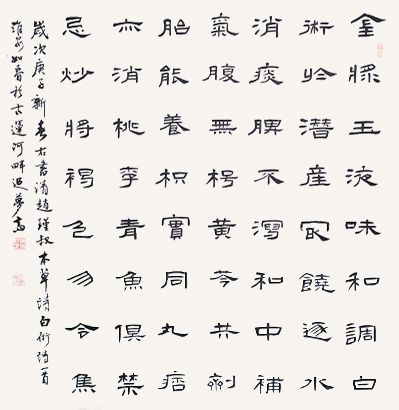 金漿玉液味和調白
術於潛產冣饒逐水
消痰脾不瀉和中補
氣腹無枵黃芩共劑
胎能養枳實同丸痞
亦消桃李青魚俱禁
忌炒將褐色勿令焦
歲次庚子新春右書清趙瑾叔本草詩白術詩一首
淮安如春於古運河畔